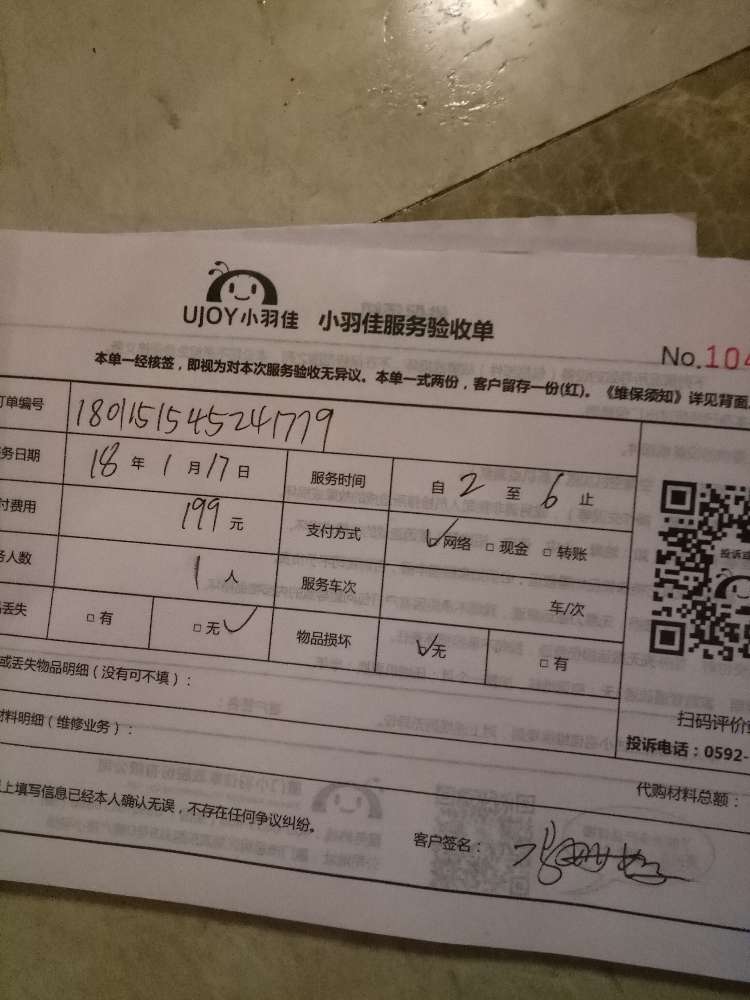 UJOY小羽佳 小羽佳服务验收单
No.104
本单一经核签,即视为对本次服务验收无异议。本单一式两份,客户留存一份(红)。《维保须知》详见背面。
订单编号 1801151545241779
务日期 18 年 1 月 17 日 服务时间 自 2 至 6 止
付费用 199 元 支付方式 ☑网络 □现金 □转账
务人数 1 人 服务车次 车/次
丢失 □有 □无✓ 物品损坏 ☑无 □有
或丢失物品明细(没有可不填):
扫码评价
材料明细(维修业务):
投诉电话:0592-
代购材料总额:
上填写信息已经本人确认无误,不存在任何争议纠纷。
客户签名: